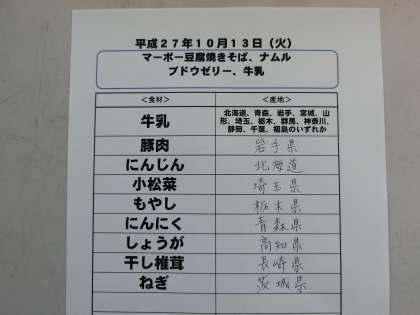 平成27年10月13日（火）
マーボー豆腐焼きそば、ナムル
ブドウゼリー、牛乳
＜食材＞ ＜産地＞
牛乳 北海道、青森、岩手、宮城、山
形、埼玉、栃木、群馬、神奈川、
静岡、千葉、福島のいずれか
豚肉 岩手県
にんじん 北海道
小松菜 埼玉県
もやし 栃木県
にんにく 青森県
しょうが 高知県
干し椎茸 長崎県
ねぎ 茨城県